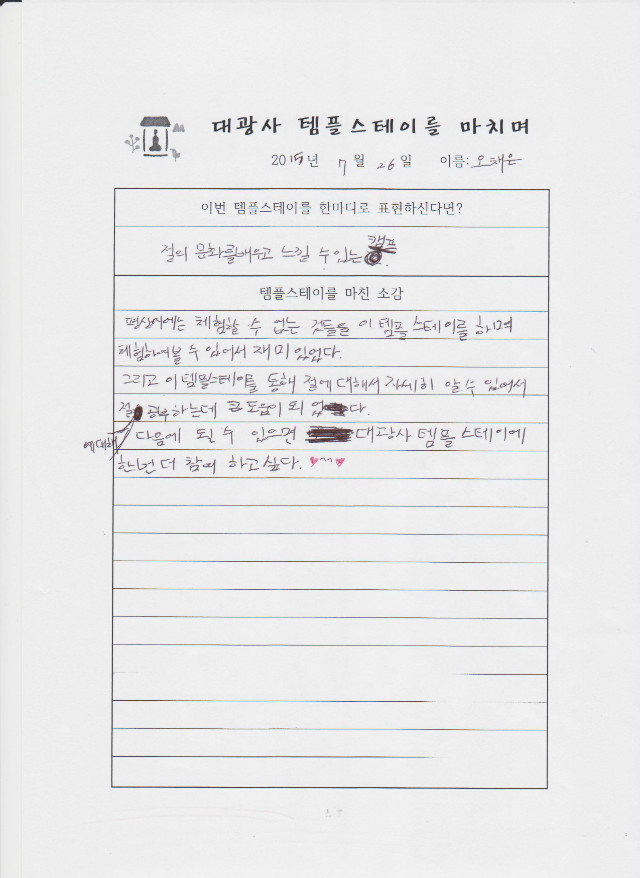 대광사 템플스테이를 마치며
2015년 7월 26일 이름: 오채은
이번 템플스테이를 한마디로 표현하신다면?
절의 문화를배우고 느낄 수 있는 캠프.
템플스테이를 마친 소감
평상시에는 체험할 수 없는 것들을 이 템플스테이를 하며
체험하여볼 수 있어서 재미있었다.
그리고 이템플스테이를 통해 절에대해서 자세히 알수있어서
절에대해 공부하는데 큰도움이 되었다.
다음에 될 수 있으면 대광사 템플스테이에
한번더 참여 하고싶다. ♥^^♥